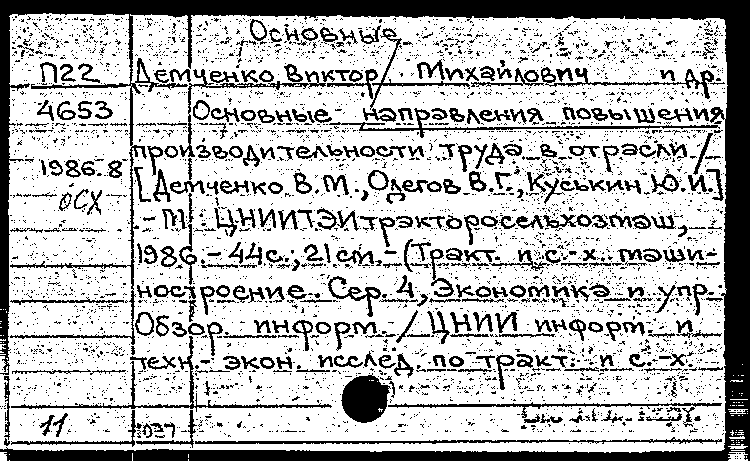 Основные
П22 Демченко, Виктор Михайлович и др.
4653 Основные направления повышения
производительности труда в отрасли /
1986.8 [Демченко В.М., Одегов В.Г., Куськин Ю.И.]
ОСХ
.- М : ЦНИИТЭИтракторосельхозмаш,
1986.- 44с.; 21см.- (Тракт. и с.-х. маши-
ностроение. Сер. 4, Экономика и упр.:
Обзор. информ. / ЦНИИ информ. и
техн.- экон. исслед. по тракт. и с.-х.
11